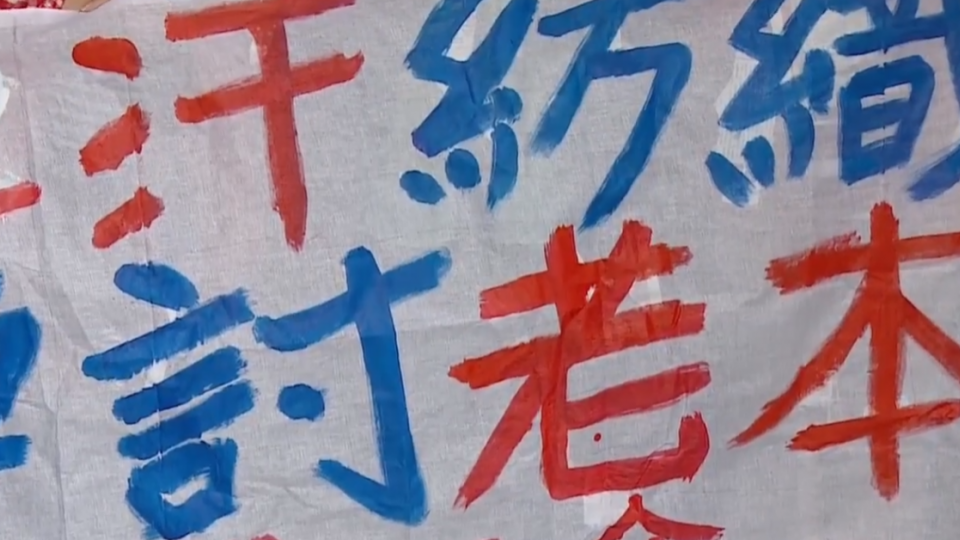 汗紡織
討老本